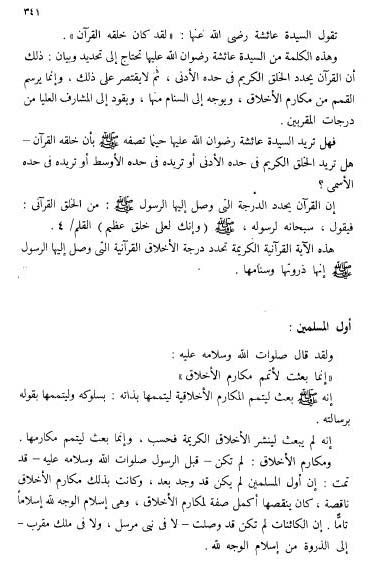 ٣٤١
تقول السيدة عائشة رضى الله عنها : « لقد كان خلقه القرآن » .
وهذه الكلمة من السيدة عائشة رضوان الله عليها تحتاج إلى تحديد وبيان : ذلك
أن القرآن يحدد الخلق الكريم فى حده الأدنى ، ثم لا يقتصر على ذلك ، وإنما يرسم
القمم من مكارم الأخلاق ، ويوجه إلى السنام منها ، ويقود إلى المشارف العليا من
درجات المقربين .
فهل تريد السيدة عائشة رضوان الله عليها حينما تصفه ﷺ بأن خلقه القرآن –
هل تريد الخلق الكريم فى حده الأدنى أو تريده فى حده الأوسط أو تريده فى حده
الأسمى ؟
إن القرآن يحدد الدرجة التى وصل إليها الرسول ﷺ : من الخلق القرآنى :
فيقول ، سبحانه لرسوله ، ﷺ ( وإنك لعلى خلق عظيم ) القلم/ ٤ .
هذه الآية القرآنية الكريمة تحدد درجة الأخلاق القرآنية التى وصل إليها الرسول
ﷺ إنها ذروتها وسنامها .
أول المسلمين :
ولقد قال صلوات الله وسلامه عليه :
« إنما بعثت لأتمم مكارم الأخلاق »
إنه ﷺ بعث ليتمم المكارم الأخلاقية ليتممها بذاته : بسلوكه وليتممها بقوله
برسالته .
إنه لم يبعث لينشر الأخلاق الكريمة فحسب ، وإنما بعث ليتمم مكارمها .
ومكارم الأخلاق : لم تكن – قبل الرسول صلوات الله وسلامه عليه – قد
تمت : إن أول المسلمين لم يكن قد وجد بعد ، وكانت بذلك مكارم الأخلاق
ناقصة ، كان ينقصها أكمل صفة لمكارم الأخلاق ، وهى إسلام الوجه لله إسلاماً
تامًّا . إن الكائنات لم تكن قد وصلت – لا فى نبى مرسل ، ولا فى ملك مقرب –
إلى الذروة من إسلام الوجه لله .